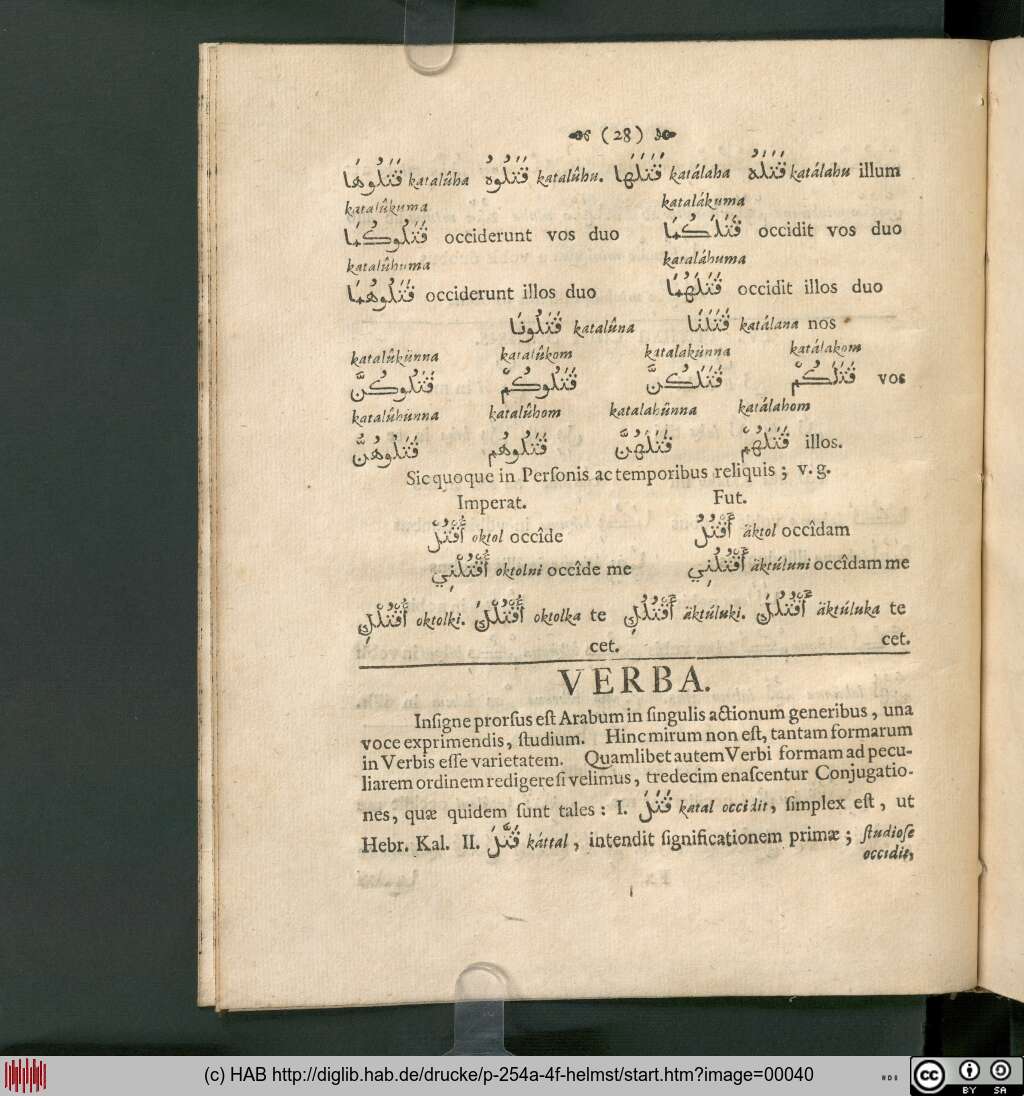 (28)
قَتَلُوهَا kataluûha قَتَلُوهُ katalûhu. قَتَلَهَا katálaha قَتَلَهُ katálahu illum
katalûkuma katalákuma
قَتَلُوكُمَا occiderunt vos duo قَتَلَكُمَا occidit vos duo
katalûhuma kataláhuma
قَتَلُوهُمَا occiderunt illos duo قَتَلَهُمَا occidit illos duo
قَتَلُونَا katalûna قَتَلَنَا katálana nos
katalûkünna katalûkom katalakünna katálakom
قَتَلُوكُنَّ قَتَلُوكُمْ قَتَلَكُنَّ قَتَلَكُمْ vos
katalûhünna katalûhom katalahünna katálahom
قَتَلُوهُنَّ قَتَلُوهُم قَتَلَهُنَّ قَتَلَهُمْ illos.
Sic quoque in Perſonis ac temporibus reliquis ; v. g.
Imperat. Fut.
أُقْتُلْ oktol occîde أَقْتُلُ äktol occîdam
أُقْتُلْنِي oktolni occîde me أَقْتُلُنِي äktúluni occîdam me
أُقْتُلْكِ oktolki. أُقْتُلْكَ oktolka te أَقْتُلُكِ äktúluki. أَقْتُلُكَ äktúluka te
cet. cet.
VERBA.
Inſigne prorſus eſt Arabum in ſingulis actionum generibus , una
voce exprimendis, ſtudium. Hinc mirum non eſt, tantam formarum
in Verbis eſſe varietatem. Quamlibet autem Verbi formam ad pecu-
liarem ordinem redigere ſi velimus, tredecim enaſcentur Conjugatio-
nes, quæ quidem ſunt tales : I. قَتَلَ katal occidit, ſimplex eſt , ut
Hebr. Kal. II. قَتَّلَ káttal , intendit ſignificationem primæ ; ſtudioſe
occidit,
(c) HAB http://diglib.hab.de/drucke/p-254a-4f-helmst/start.htm?image=00040
cc BY SA